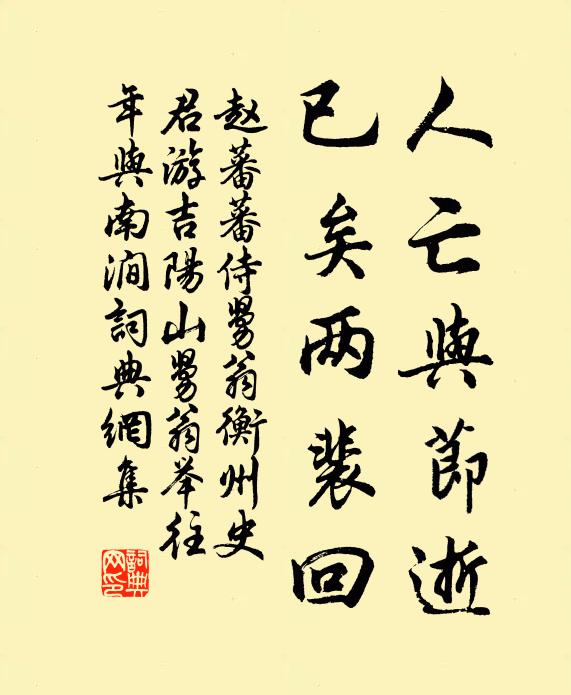 人亡與節逝
已矣两裴回
赵蕃蕃侍舅翁衡州史
君游吉陽山舅翁举往
年與南澗詞典網集
詞典网印